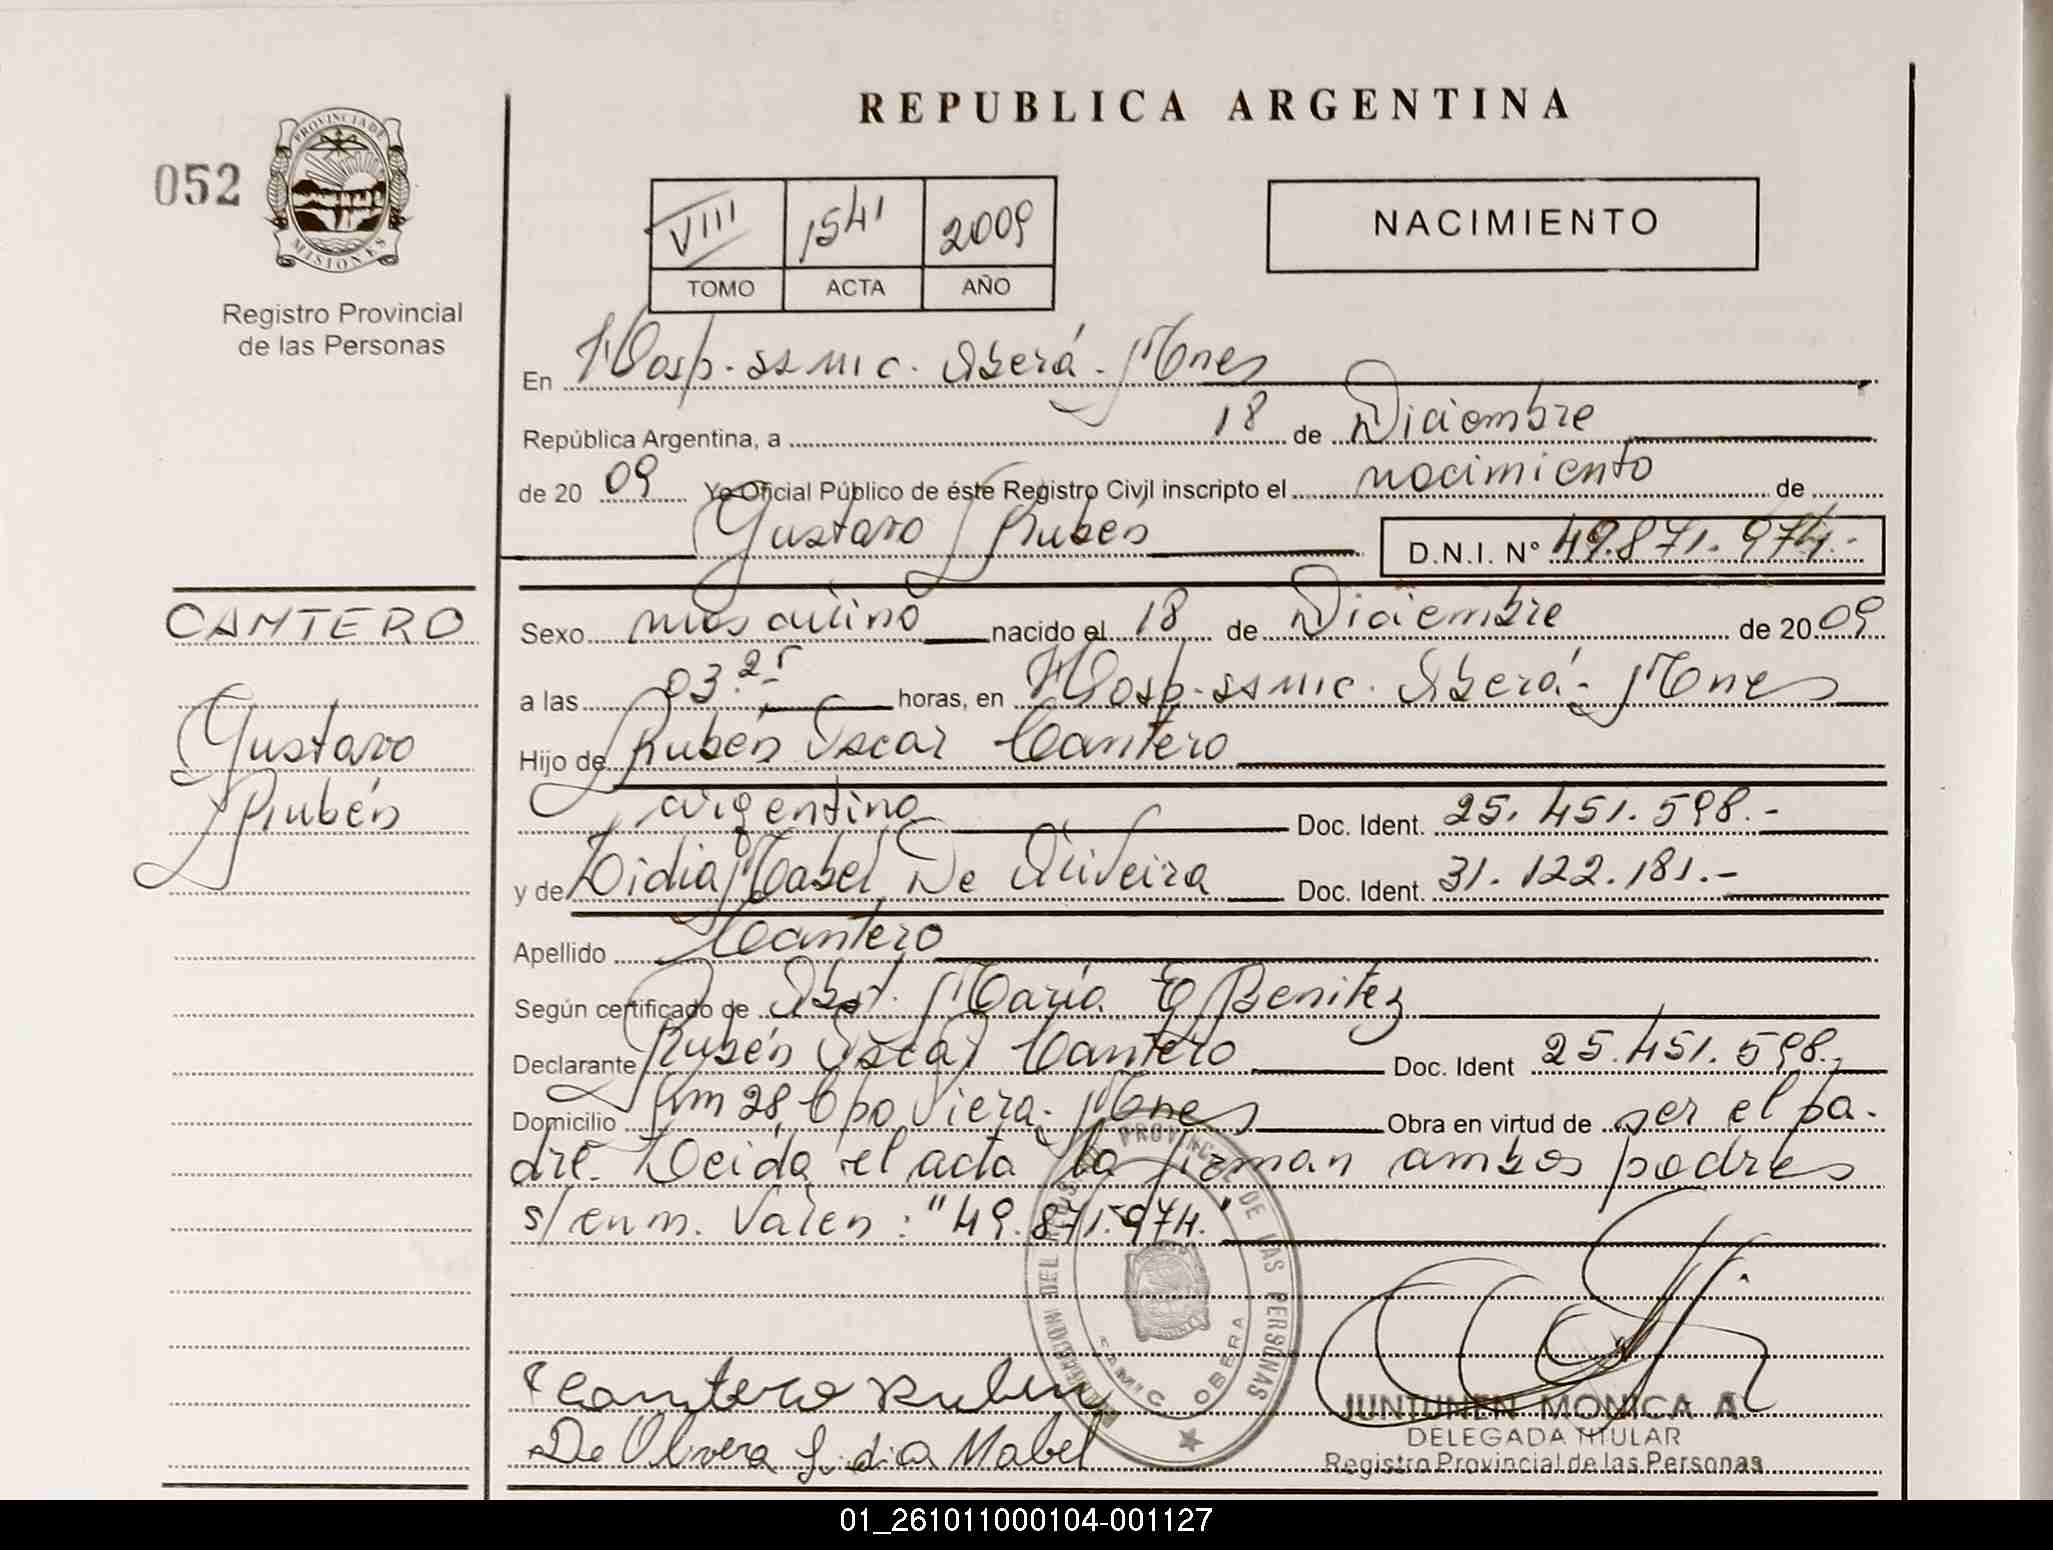 REPUBLICA ARGENTINA
052
PROVINCIA DE
MISIONES
Registro Provincial
de las Personas
VIII 1541 2009
TOMO ACTA AÑO
NACIMIENTO
En Hosp. SSMIC. Oberá - Mnes
República Argentina, a 18 de Diciembre
de 20 09 Yo Oficial Público de éste Registro Civil inscripto el nacimiento de
Gustavo Rubén D.N.I. N° 49.871.974.-
CANTERO
Gustavo
Rubén
Sexo masculino nacido el 18 de Diciembre de 20 09
a las 03.25 horas, en Hosp. SSMIC. Oberá - Mnes
Hijo de Rubén Oscar Cantero
argentino Doc. Ident. 25.451.598.-
y de Lidia Mabel De Oliveira Doc. Ident. 31.122.181.-
Apellido Cantero
Según certificado de Obst. María E Benitez
Declarante Rubén Oscar Cantero Doc. Ident 25.451.598.-
Domicilio Km 28, Cpo Viera - Mnes Obra en virtud de ser el pa-
dre. Leida el acta la firman ambos padres
s/enm. Valen: "49.871.974."
PROVINCIAL DE LAS PERSONAS
SAMIC OBERA
Cantero Ruben
De Olivera Lidia Mabel
JUNTUNEN MONICA A.
DELEGADA TITULAR
Registro Provincial de las Personas
01_261011000104-001127